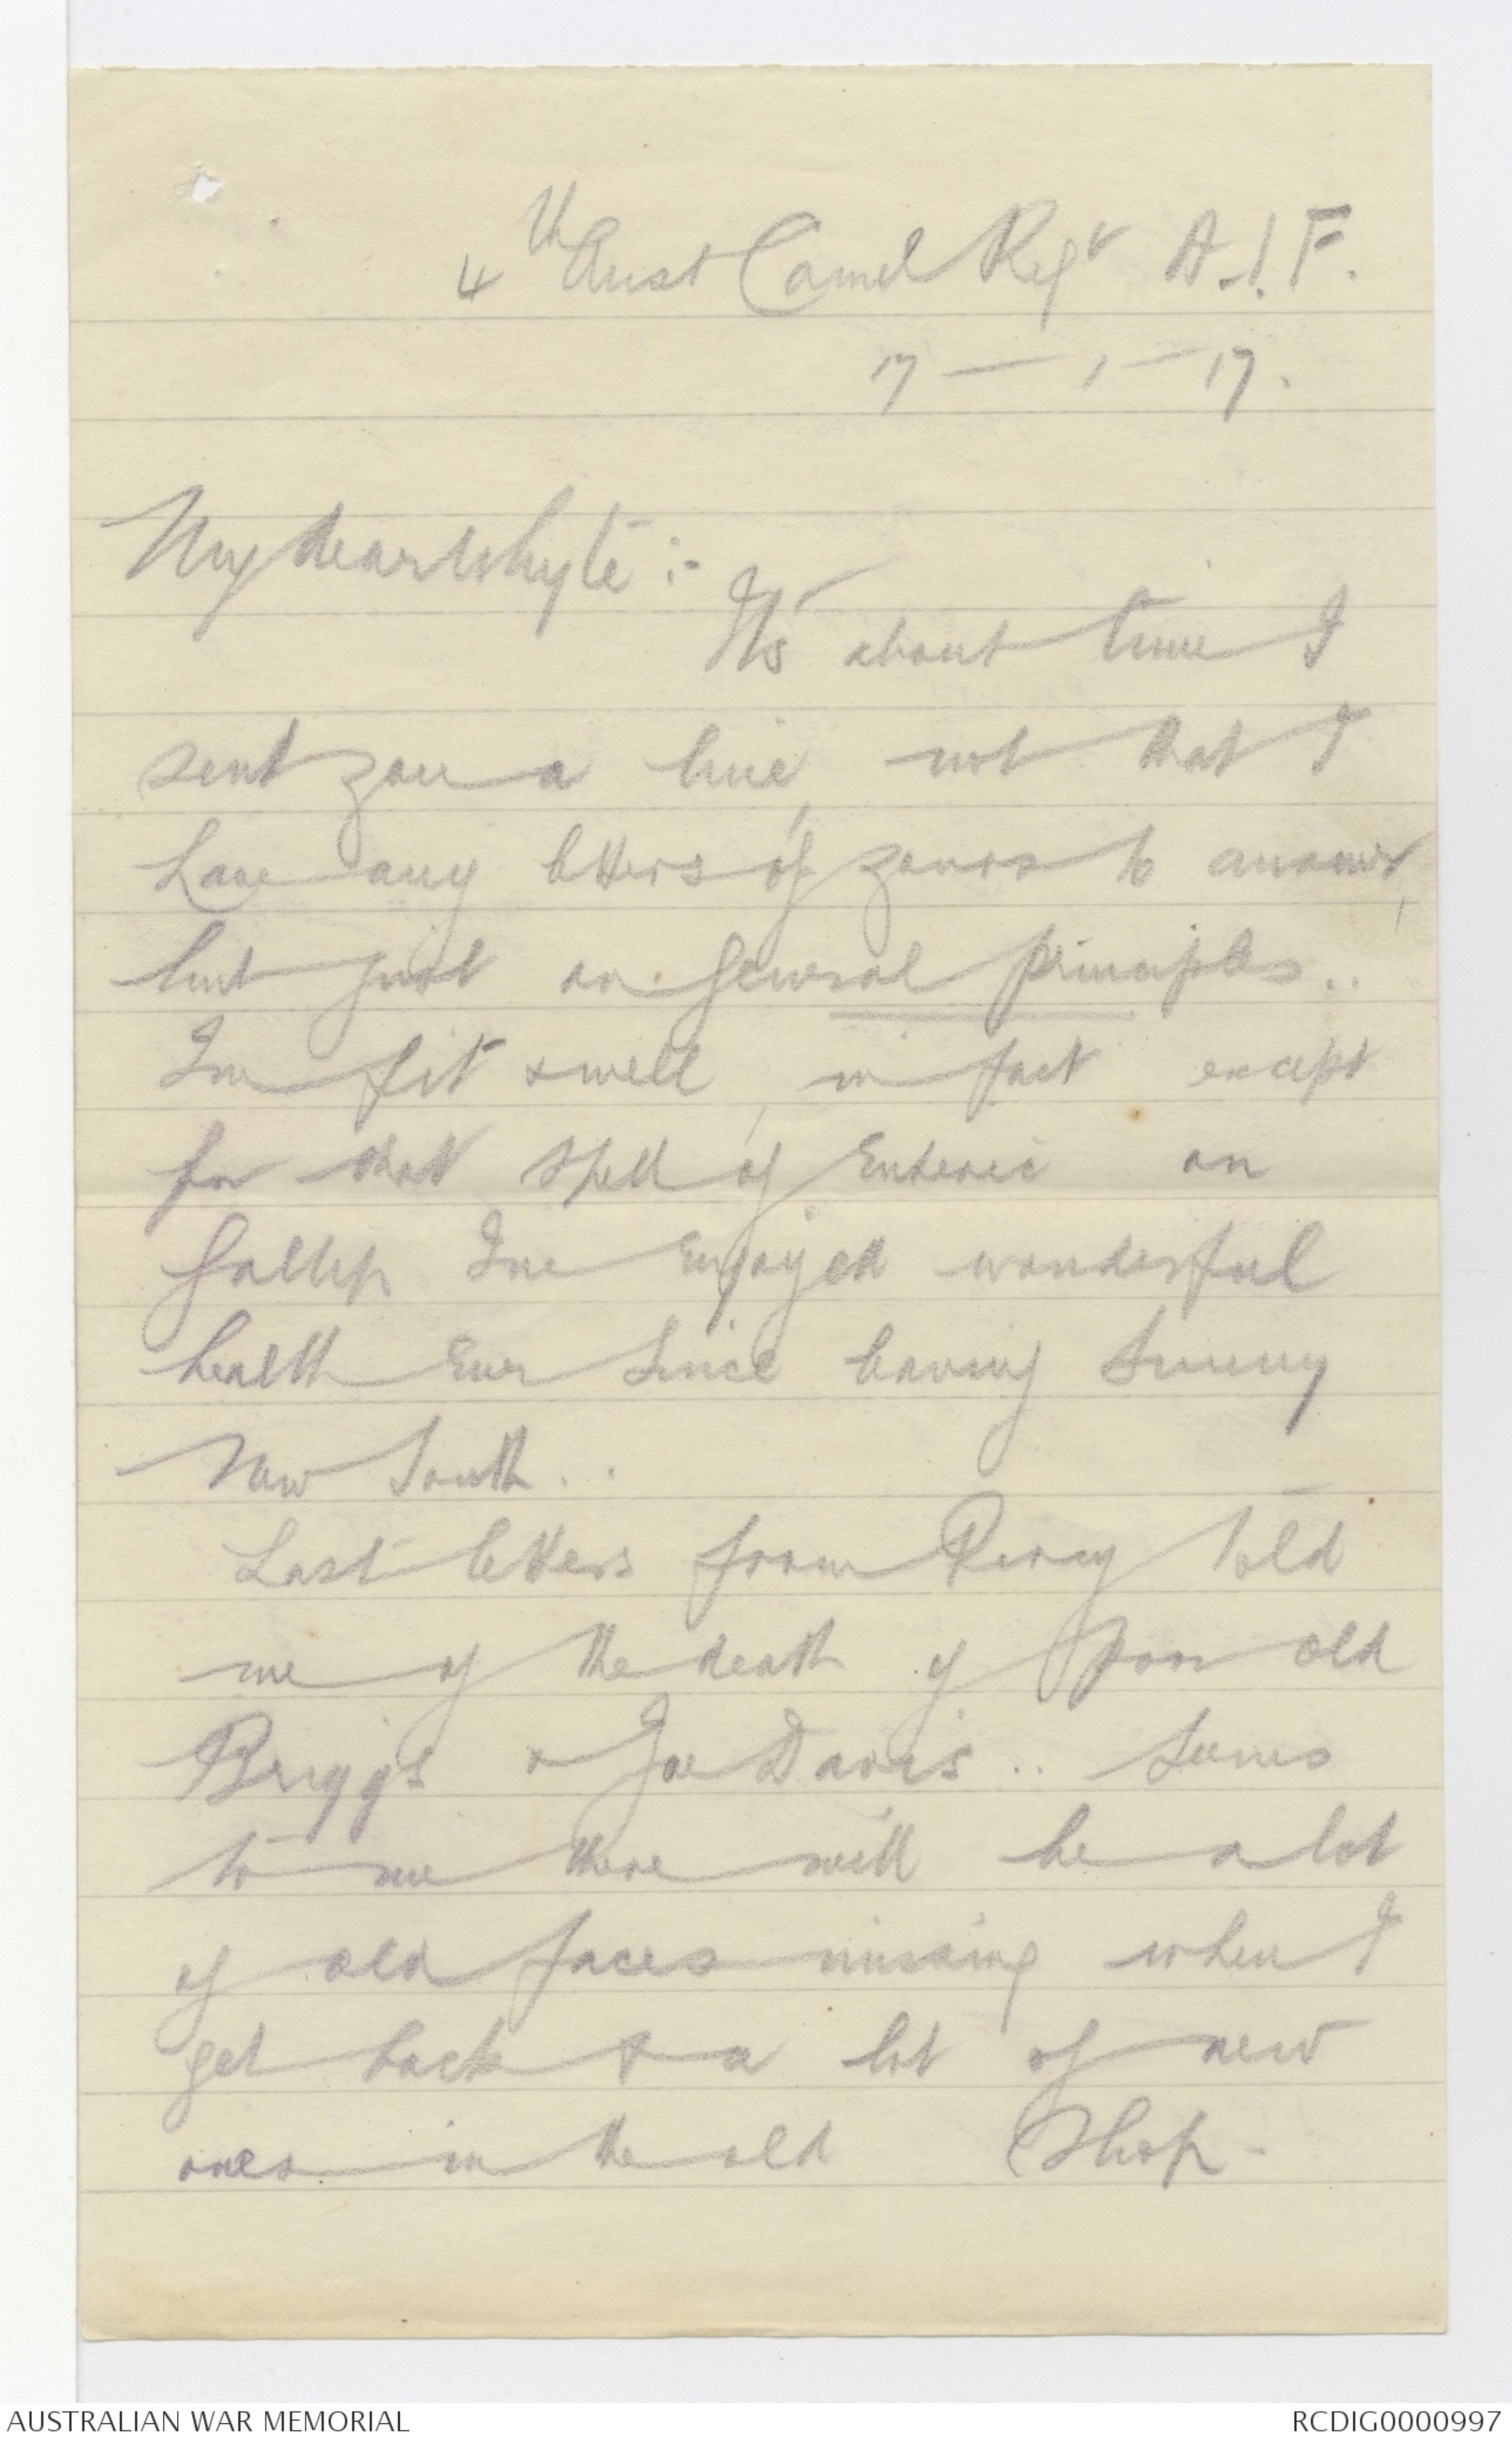 4th Aust Camel Regt A.I.F.
17 — 1 — 17.
My dear Whyte :-
It's about time I
sent you a line, not that I
have any letters of yours to answer,
but just on general principles..
Im fit & well, in fact except
for that spell of Enteric on
Gallip Ive enjoyed wonderful
health ever since leaving Sunny
New South..
Last letters from Percy told
me of the death of poor old
Briggs & Joe Davis.. Seems
to me there will be a lot
of old faces missing when I
get back & a lot of new
ones in the old Shop -
AUSTRALIAN WAR MEMORIAL
RCDIG0000997